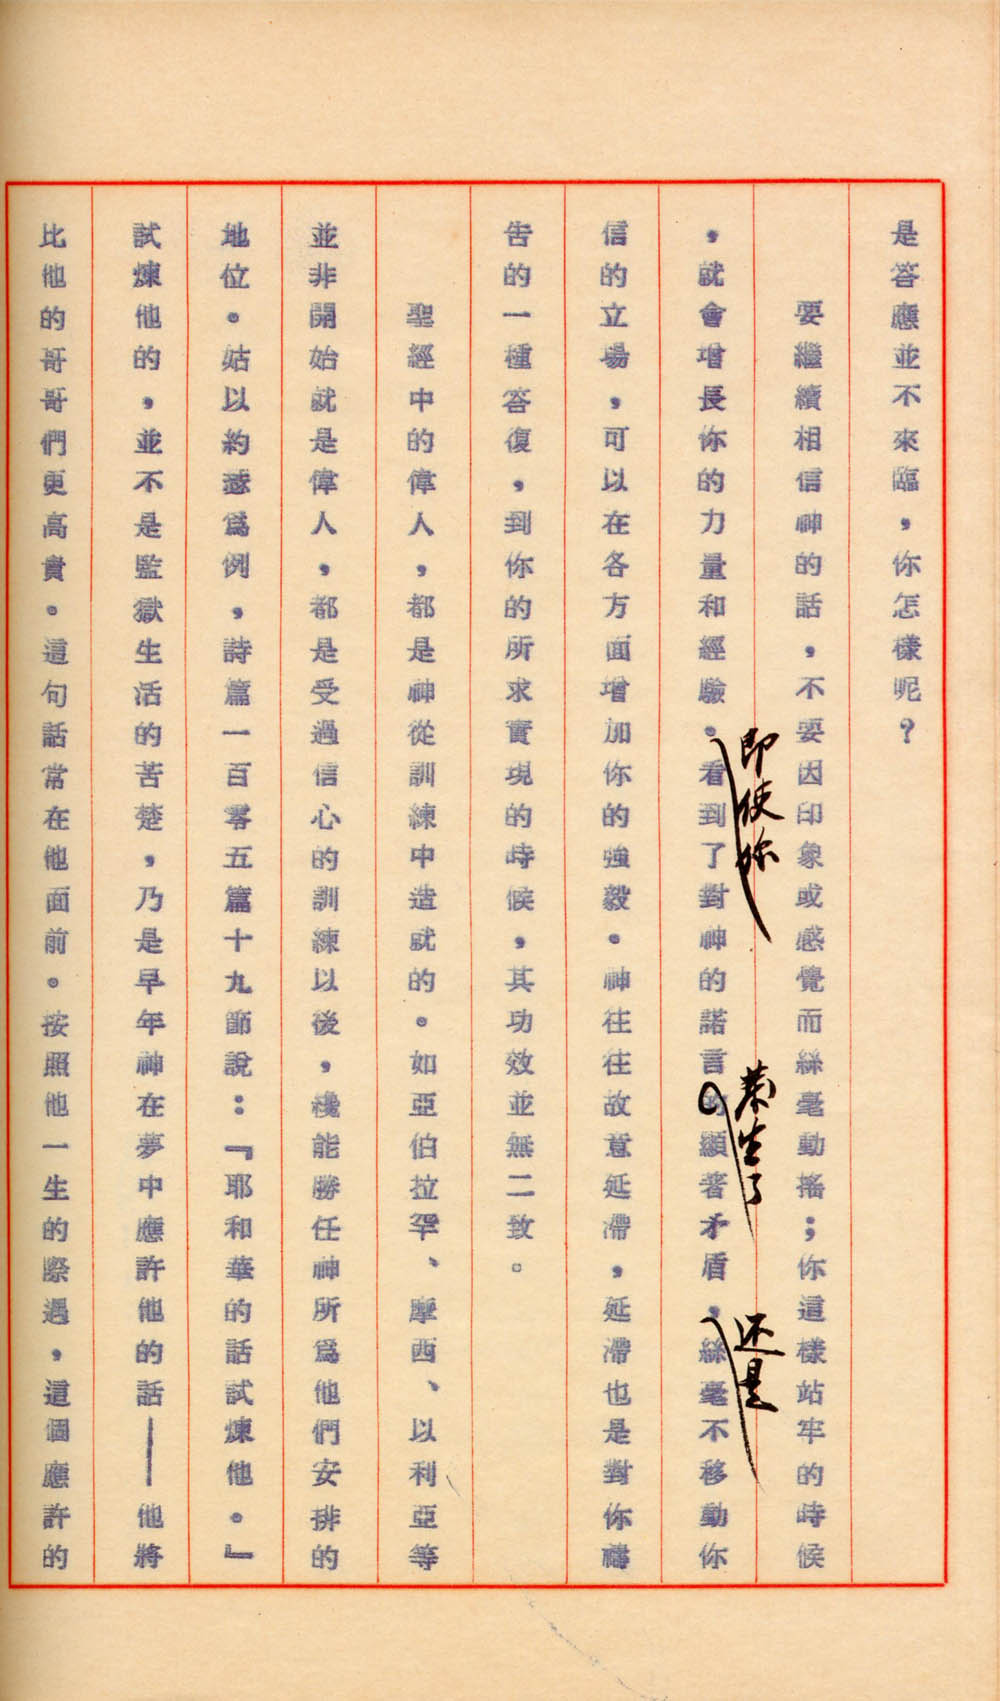 是答應並不來臨，你怎樣呢？
要繼續相信神的話，不要因印象或感覺而絲毫動搖；你這樣站牢的時候
，就會增長你的力量和經驗。看到了對神的諾言的顯著矛盾，絲毫不移動你
即使你
发生了
还是
信的立場，可以在各方面增加你的強毅。神往往故意延滯，延滯也是對你禱
告的一種答復，到你的所求實現的時候，其功效並無二致。
聖經中的偉人，都是神從訓練中造就的。如亞伯拉罕、摩西、以利亞等
並非開始就是偉人，都是受過信心的訓練以後，纔能勝任神所爲他們安排的
地位。姑以約瑟爲例，詩篇一百零五篇十九節說：『耶和華的話試煉他。』
試煉他的，並不是監獄生活的苦楚，乃是早年神在夢中應許他的話——他將
比他的哥哥們更高貴。這句話常在他面前。按照他一生的際遇，這個應許的